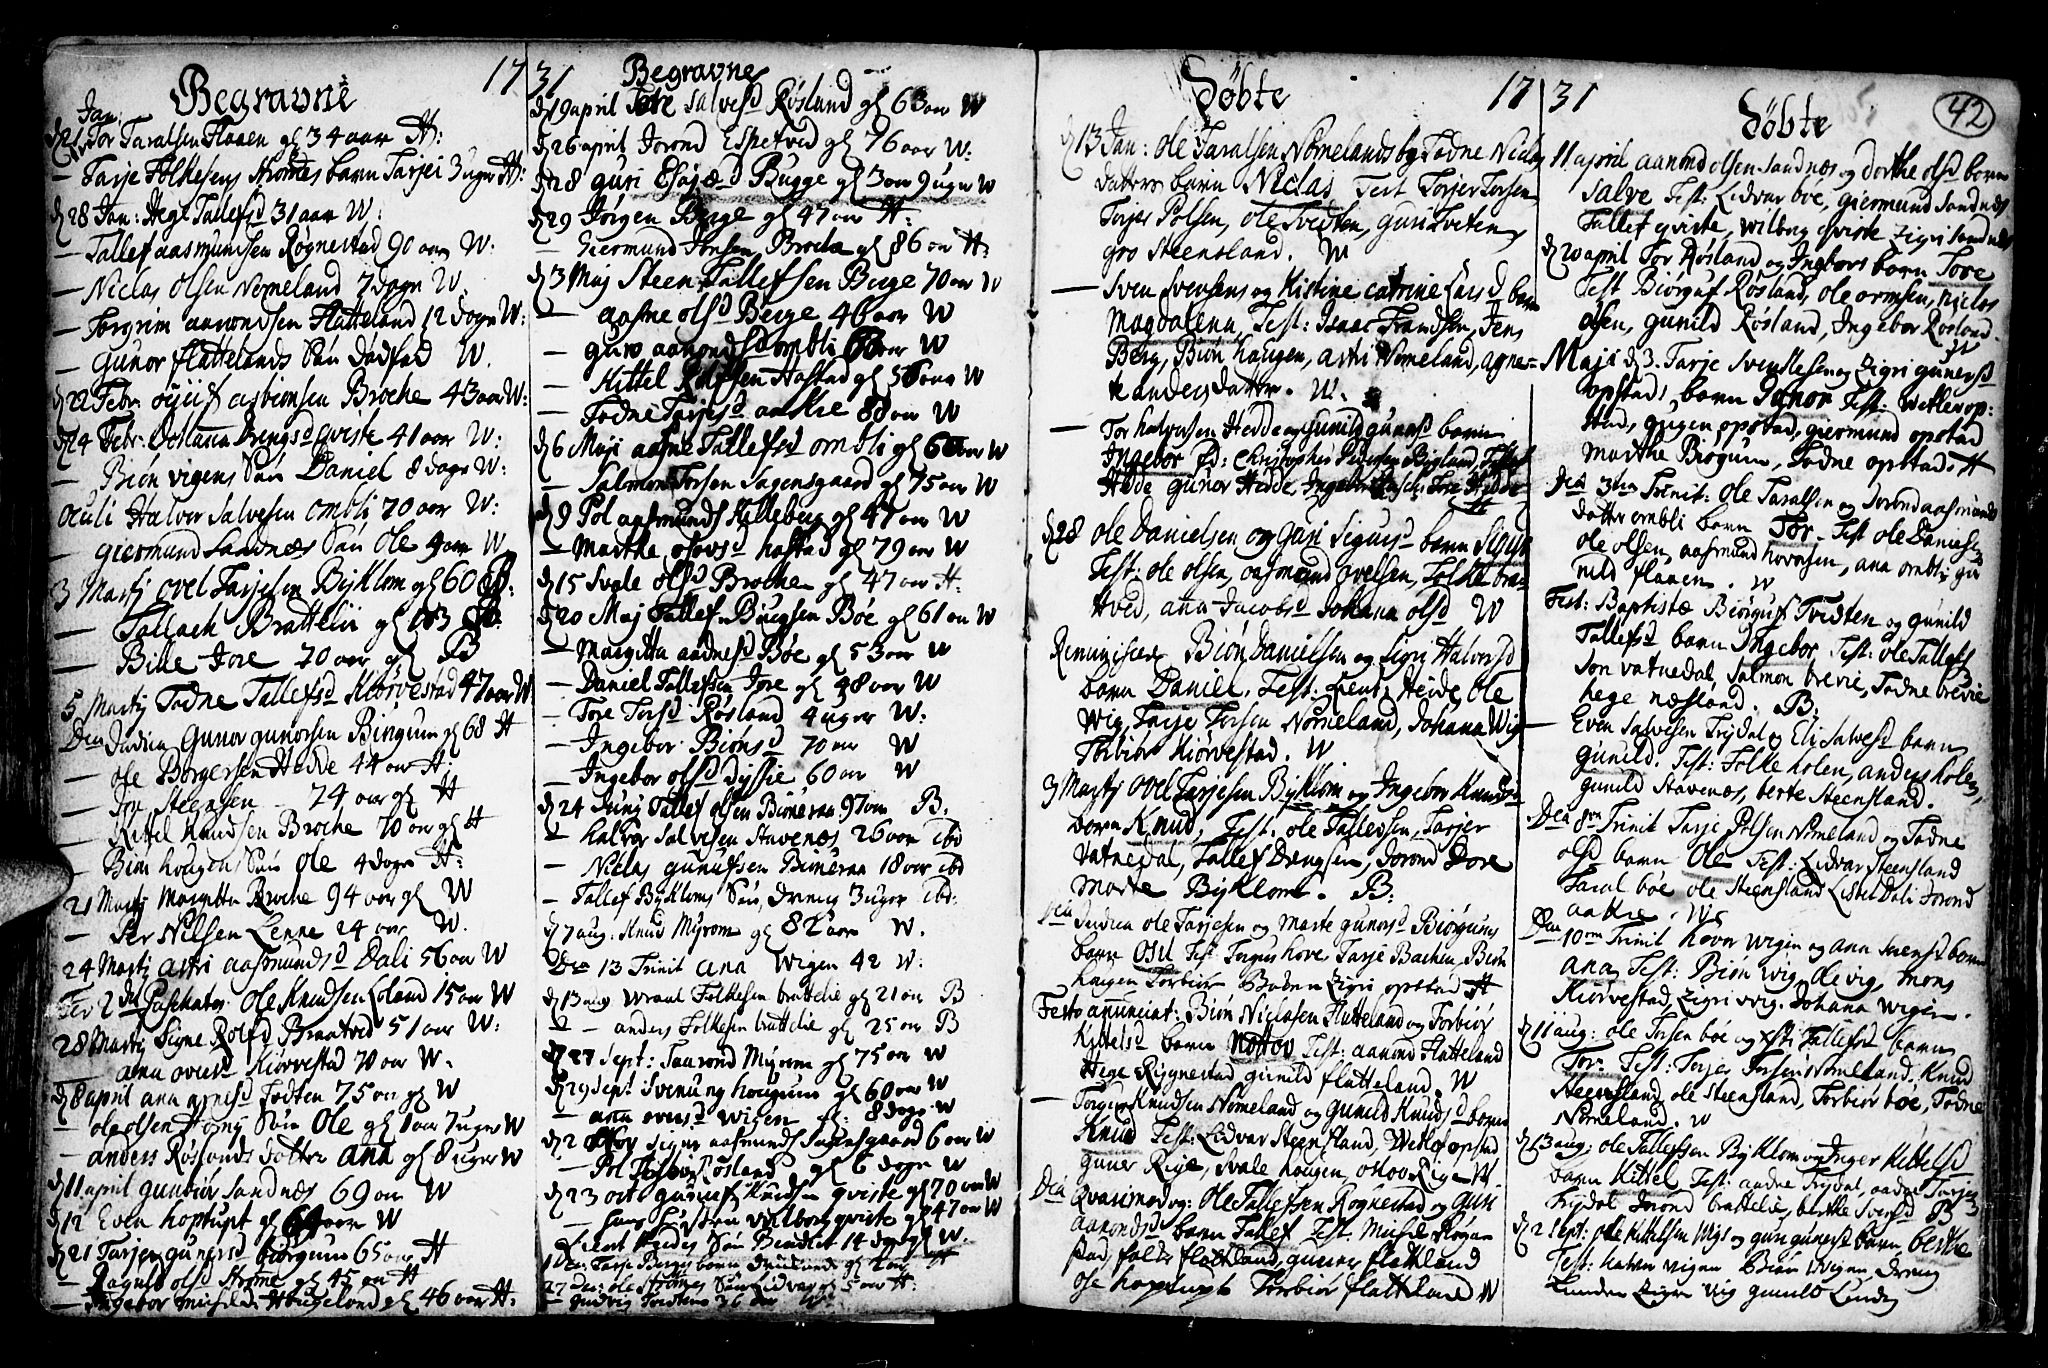 Begravne 17
Jan:
d 21 Tor Taralsen Flaaen gl 34 aar H:
— Tarje Folkesens Hommes barn Tarjei 3 uger H:
d 28 Jan: Hege Tallefsd 31 aar W:
— Tallef aasmundsen Rognestad 90 aar W:
— Niclas Olsen Nomeland 7 dage W.
— Torgrim aanondsen Flatteland 12 dage W:
— Gunor flattelands Søn dødfød W.
d 22 Febr: asbionsen Broche 43 aar W:
d 24 Febr: Johanna Drengsd qviste 41 aar W:
— Biøn vigens Søn Daniel 8 dage W:
Oculi Halvor Salvesen ombli 70 aar W:
— giermund Sandnæs Søn Ole 4 aar W
3 Martj ovel Tarjesen Byklom gl 60 B:
— Tallach Brattelii gl 103 B:
— Bille Jore 70 aar gl B
5 Martj Todne Tallefsd Kiørvestad 47 aar W
Dca Judica Gunor gunorsen Birgum gl 68 H
— ole Borgersen Hedde 44 aar H:
— Tor Steensen 74 aar gl H
— Kittel Knudsen Broche 70 aar gl H
— Biøn hougens Søn Ole 4 dage H:
21 Martj Margitta Broche 94 aar gl W
— Per Nilsen Lenne 24 aar W.
24 Martj astri aasmundsd Dali 56 aar W
Fer 2 da Paschatos Ole Knudsen Loland 15 aar W
28 Martj Signe Rolfsd Braatved 51 aar W:
— anna oversd Kiørvestad 70 aar W.
d 8 april ana arnesd Jodten 75 aar gl W
— ole olsen Homj Søn Ole gl 1 aar 7 uger W
— anders Røslands datter ana gl 8 uger W
d 11 april gunbiør Sandnæs 69 aar W
d 12 Even hoptupt gl 64 aar W
d 21 Tarjer gunersd biørgum 65 aar H
— Ragnild olsd Homme gl 45 aar H
— Ingebor Haugeland gl 46 aar H:
31 Begravne
d 19 april Tore Salvesd Røsland gl 63 aar W
d 26 april Jorond Espetved gl 76 aar W:
d 28 guri Esajæd Bugge gl 3 aar 9 uger W
d 29 Jørgen Berge gl 47 aar H:
— Giermund Jonsen Broche gl 86 aar H:
d 3 Maj Steen Tallefsen Berge 70 aar W
— aasne olsd Berge 46 aar W
— guro aanondsd ombli 66 aar W
— Kittel Rolfsen Hastad gl 56 aar W
— Todne Tarjesd aakre 80 aar W
d 6 Maji aasne Tallefsd ombli gl 60 aar W
— Salmon Torsen Sagensgaard gl 75 aar W
d 9 Pol aasmunds Hilleberg gl 47 aar W
— Marthe olovsd hastad gl 79 aar W
d 15 Svale olsd Brochen gl 47 aar H.
d 20 Maj Tallef Biugsen Bøe gl 61 aar W
— Margitta aadnesd Bøe gl 53 aar W
— Daniel Tallefsen Jore gl 48 aar W
— Tore Torsd Røsland 4 uger W:
— Ingebor Biønsd 70 aar W
— Ingebor olsd Lyssie 60 aar W
d 24 Junj Tallef olsen Biøneraa 97 aar B.
— halvor Salvesen Stavenæs 26 aar ibd
— Niclas gunulfsen Bimeraa 18 aar ibd
— Tallef Byklems Søn, dreng 3 uger ibd:
d 7 aug: Knud Myrom gl 82 aar W.
Dca 13 Trinit ana Wigen 42 W:
d 13 aug Wraal Folkesen brattelie gl 21 aar B
d — anders folkesen brattelie gl 25 aar B
d 27 Sept: Taarond Myrom gl 75 aar W
d 29 Sept Svenung hougum gl 60 aar W
— ana oversd Wigen gl: 8 dage W
d 2 signe aasmunds Sagensgaard 6 aar W
— Pol Røsland gl 6 dage W
d 23 oct Knudsen qviste gl 70 aar W
— hans hustru Vilborg qviste gl 47 aar W
Lieut Heides Søn Bendict 14 dage W.
1 Dec: Tarje Berges barn gl 1 aar H
27 dec: ole Hommes Søn Lidvar gl 5 aar H.
— gudvig 36 aar W
Døbte 17
d 13 Jan: ole Taralsen Nomelands og Todne Niclas
datters barn Niclas Test Torjer Torsen
Torjer Polsen, ole Tveiten, guri Tveiten,
gro Steensland. W
— Sven Svensens og Kistine Catrine Larsd barn
Magdalena, Test: Isaac Frandsen, Jens
Berg, Biøn haugen, astri Nomeland, agne=
te andersdatter. W.
— Tor halvorsen Hedde og gunild gunersd barn
Ingebor fd: Christopher Pedersen Bygland, Tallef
Hedde gunor Hedde, Ingebor Tore Hedde
H
d 28 ole Danielsen og guri Sigursd barn Sigur
Test: ole olsen, aasmund ovelsen, Folke braa
tved, ana Jacobsd Johana olsd W
Reminiscere Biøn Danielsen og Sigri Halvorsd
barn Daniel. Test: Lieut: Heide, Ole
Wig, Tarje Torsen Nomeland, Johana Wig
Torbiør Kiørvestad. W
3 Martj ovel Tarjesen Byklom og Ingebor Knudsd
barn Knud, Test: ole Tallefsen, Tarjer
Vatnedal, Tallef Drengsen, Jorond Jore
Marte Byklom. B.
Dca Judica ole Tarjesen og Marte gunorsd Biørgums
barn Osu Test: Torgus hove, Tarje Bachen, Biøn
haugen Torbiør Boden Zigri opstad H
Festo anunciat: Biøn Niclasen Flatteland og Torbiør
Kittelsd barn Nottov Test: aanond Flatteland
Hege Rygnestad gunild flatteland. W
— Torger Knudsen Nomeland og gunild Knudsd barn
Knud Test: Lidvar Steensland, Wetlef opstad
guner Rige, Svale haugen, olov Rige W
Dca Qvasimodog: ole Tallefsen Rognestad og guri
aanondsd barn Tallef Test: Michel Rogne
stad, folke flatteland, guner flatteland
ole hoptupt Torbiør flatteland W
31 Døbte 42
11 april aanond olsen Sandnæs og dorthe olsd barn
Salve Test: Lidvar boe, giermund Sandnæs
Tallef qviste, Wilborg qviste Zigri sandnæs
d 20 april Tor Røsland og Ingebors barn Tore
Test Biørguf Røsland, ole ormsen, Niclas
olsen, gunild Røsland, Ingebor Røsland.
W
Maji d 3. Tarje Svenkesen og Zigri gunersd
opstads barn Gunor Test: Wetlev op:
stad, gugen opstad, giermund opstad
Marthe Biørgum, Todne opstad H
Dca 3tia Trinit: Ole Taralsen og Jorond aasmunds
datter ombli barn Tor. Test ole Danielsen
ole olsen, aasmund hovorsen, ana ombli gu
nild flaaen. W
Fest: Baptistæ Biørguf Tvedten og gunild
Tallefsd barn Ingebor Test: ole Tallefs
søn vatnedal, Salmon brevie, Todne brevie
hege næsland. B.
— Even Salvesen Trydal og Eli Salvesd barn
gunild. Test: Folke holen, anders holen,
gunild Stavenæs, berte Steensland.
Dca 8va Trinit Tarje Polsen Nomeland og Todne
olsd barn Ole Test: Lidvar Steensland
Taral bóe ole Steensland Lisbet Dali Jorond
aakre. W.
Dca 10ma Trinit Hovor Wigen og ana Svensd barn
ana Test: Biøn wig, ole vig, Mons
Kiørvestad, Zigri vig. Johana Wigen.
d 11 aug: ole Torsen bóe og Tallefsd barn
Tor. Test: Torjer Torsen Nomeland. Knud
Steensland, ole Steensland, Torbiør boe, Todne
Nomeland. W
d 13 aug: ole Tallefsen Byklom og Inger Kittelsd
barn Kittel Test: aadne Trydal, aadne Tarjes
Trydal Jorond brattelie, berthe Sversd B
d 2 Sept: ole Kittelsen Wigs og guri gunersd barn, berthe
Test: halvor vigen Biøn Wigen, Dreng
Lunden Zigri Vig gunild Lunden